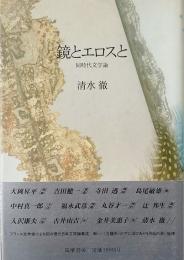 鏡とエロスと
同時代文学論
清水 徹
大岡昇平 吉田健一 寺田透 島尾敏雄
中村真一郎 福永武彦 丸谷才一 辻邦生
入沢康夫 古井由吉 金井美恵子 清水徹
筑摩書房